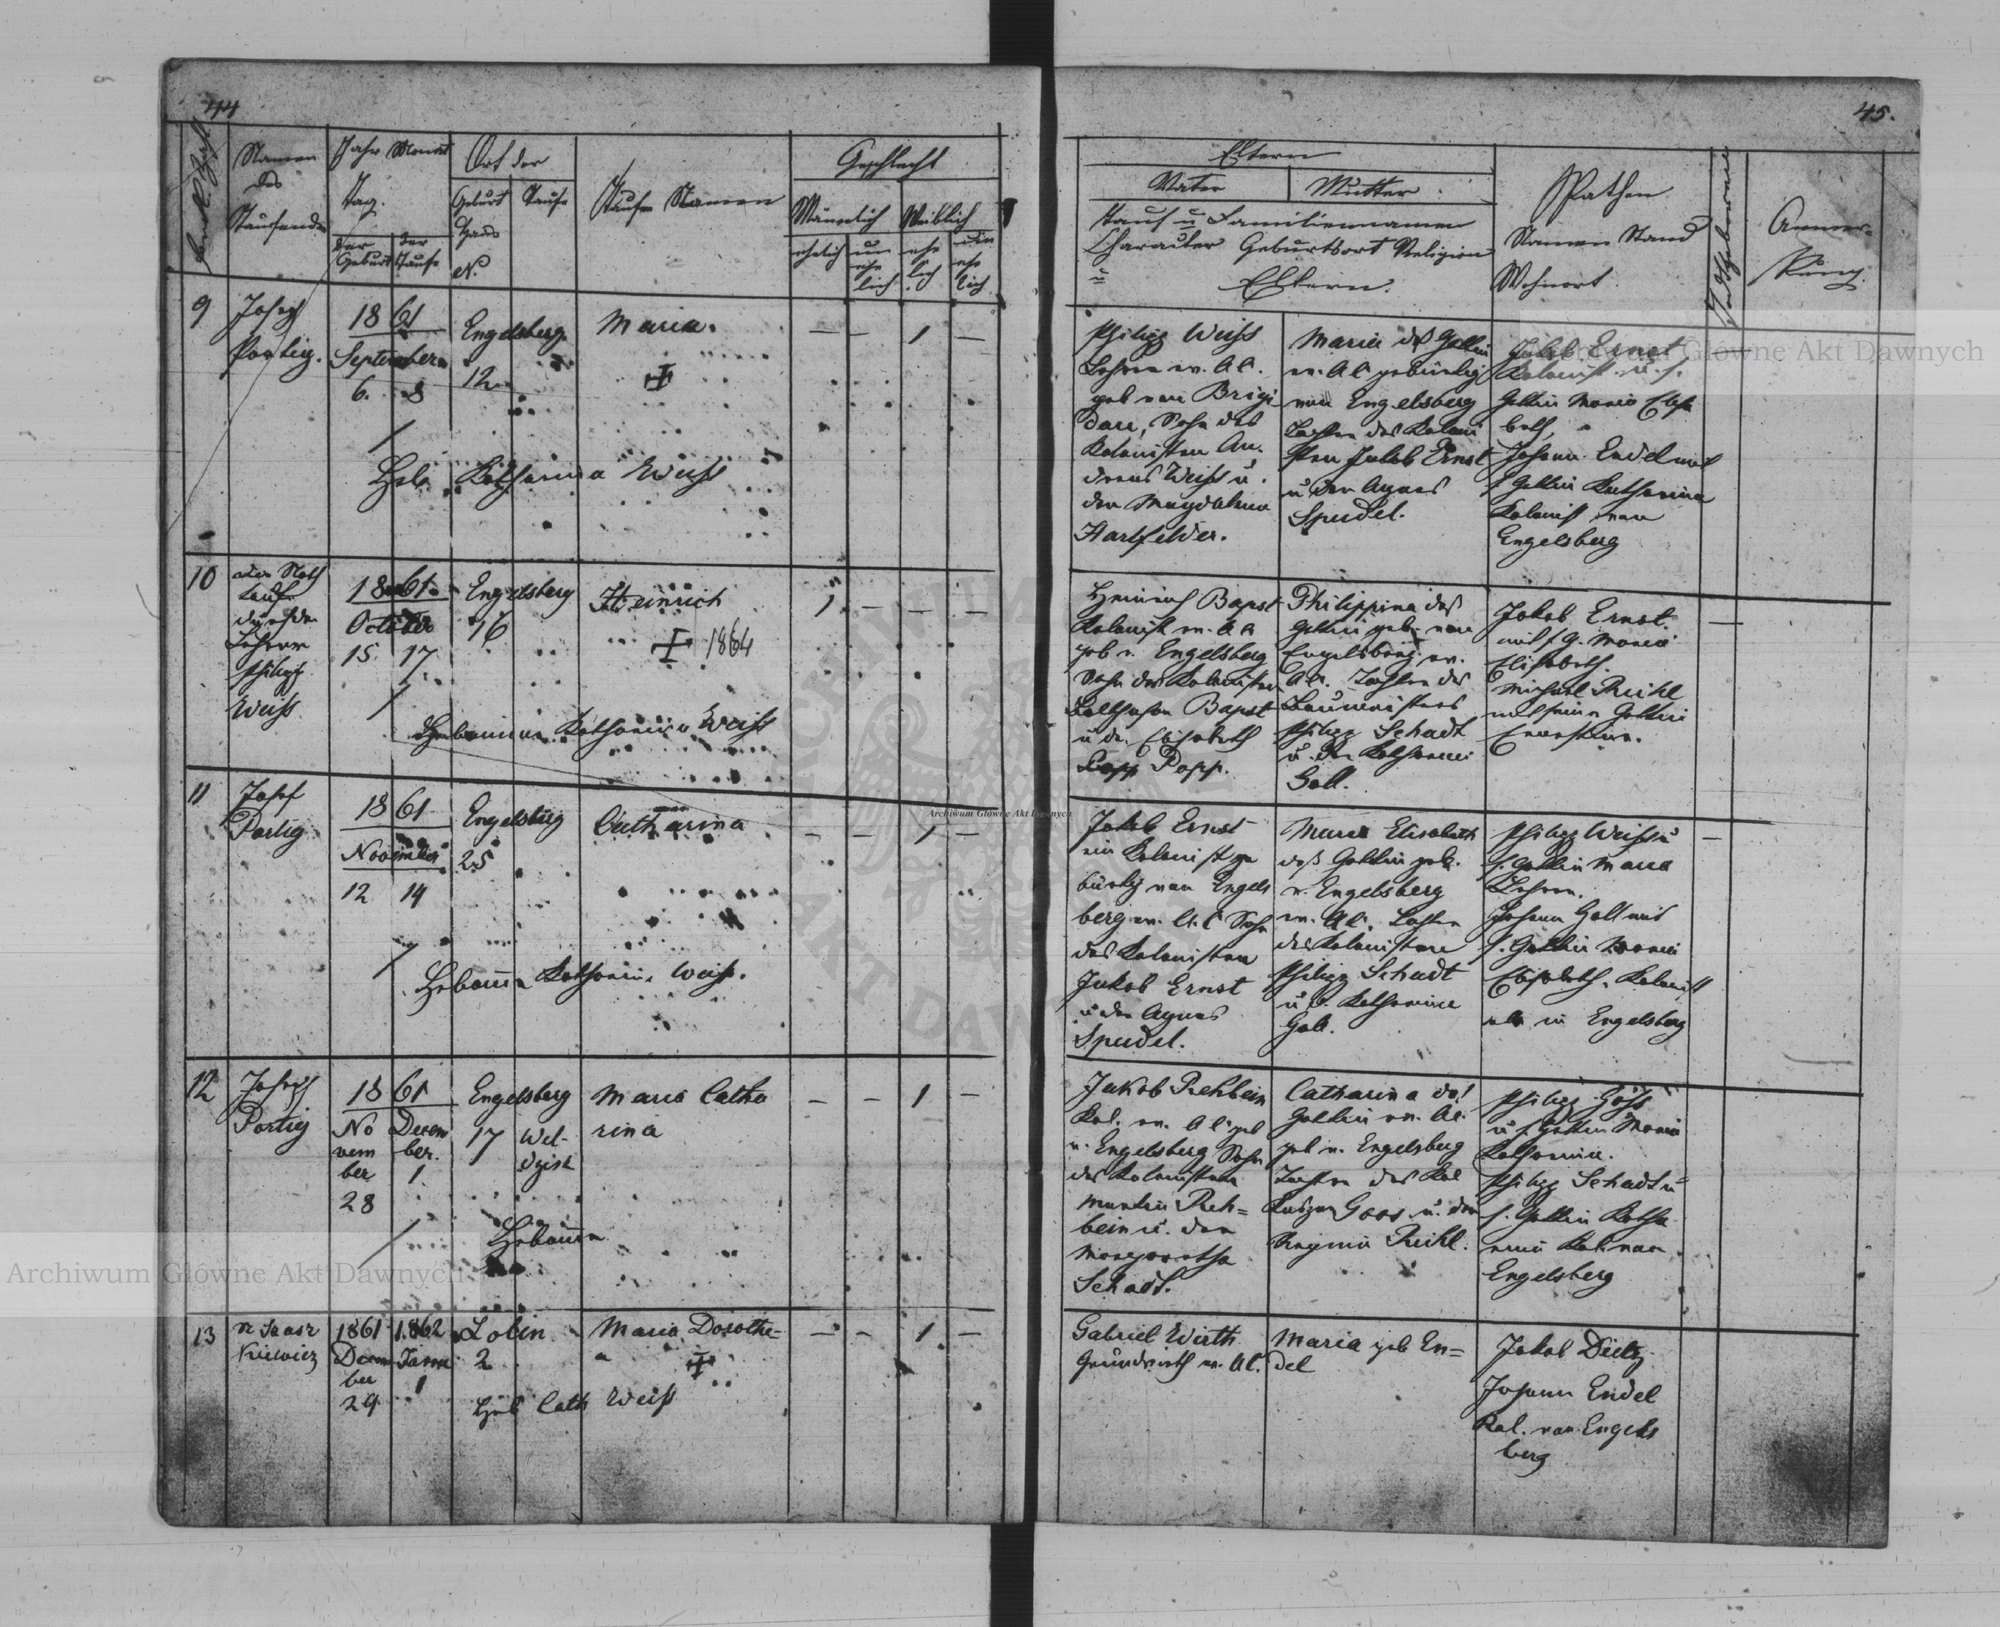 44
Namen
des
Taufenden
Jahr Monat
Tag.
der Geburt
der Taufe
Ort der
Geburt
Taufe
Haus
No
Tauf Namen
Geschlecht
Männlich
Weiblich
ehelich
un
ehe
lich
ehe
lich
un
ehe
lich
9
Joseph
Portig.
18 61
September
6. 8
Engelsberg
12
Maria.
Heb. Katharina Weiss
10
Noth
Taufe
durch den
Lehrer
Philipp
Weiss
18 61
October
15 17
Engelsberg
16
Heinrich
1864
Hebamme Katharina Weiss
11
Josef
Portig
18 61
November
12 14
Engelsberg
25
Catharina
Hebamme Katharina Weiss.
12
Joseph
Portig
18 61
No
vem
ber
28
Decem
ber.
1.
Engelsberg
17
Maria Catha
rina
Hebamme
13
1861 1862
Decem
ber
29
Janu
1
Lolin
2
Maria Dorothe-
a
Heb Cath Weiss
45.
Eltern
Vater
Mutter
Tauf u Familiennamen
Charakter Geburtsort Religion
u
Eltern.
Pathen
Namen Stand
Wohnort.
Anmer-
kung.
Philipp Weiss
Lehrer ev. A C.
geb von Brigi
dau, Sohn des
Kolonisten An-
dreas Weiss u.
der Magdalena
Hartfelder.
Maria des Gattin
ev. A C gebürtig
von Engelsberg
Tochter des Koloni
sten Jakob Ernst
u der Agnes
Spudel.
Jakob Ernst
Kolonist u. s.
Gattin Maria Elisa
beth,
Johann Endel mit
s Gattin Katharina
Kolonist von
Engelsberg
Heinrich Bapst
Kolonist ev. A C
geb v. Engelsberg
Sohn des Kolonisten
Balthasar Bapst
u der Elisabeth
Popp.
Philippina des
Gattin geb. von
Engelsberg ev.
A C. Tochter des
Philipp Schadt
u. der Katharina
Goll.
Jakob Ernst
mit s. G. Maria
Elisabeth.
Michael Rühl
mit seiner Gattin
Jakob Ernst
ein Kolonist ge
bürtig von Engels
berg ev. A. C Sohn
des Kolonisten
Jakob Ernst
u der Agnes
Spudel.
Maria Elisabeth
des Gattin geb.
v. Engelsberg
ev. A C. Tochter
des Kolonisten
Philipp Schadt
u d. Katharina
Goll.
Philipp Weiss u
s. Gattin Maria
Lehrer.
Johann Goll mit
s. Gattin Maria
Elisabeth, Kolonist
alle in Engelsberg
Jakob Rehbein
Kol. ev. A C geb
v. Engelsberg Sohn
des Kolonisten
Martin Reh=
bein u. der
Margaretha
Schadt.
Catharina des
Gattin ev. A C.
geb v. Engelsberg
Tochter des Kol
Kaspar Goos u. der
Regina Rühl.
Philipp
u s. Gattin Maria
Katharina.
Philipp Schadt u
s. Gattin Katha
rina Kol. von
Engelsberg
Gabriel Wirth
Grundwirth ev. A C.
Maria geb En=
del
Jakob Dietz
Johann Endel
Kol. von Engels
berg
Archiwum Główne Akt Dawnych
Archiwum Główne Akt Dawnych
Archiwum Główne Akt Dawnych